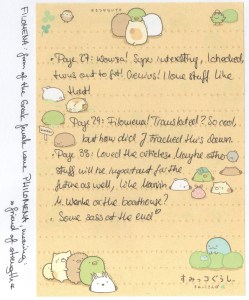 • Page 27: Wowza! Super interesting, I checked,
turns out to fit! Genius! I love stuff like
that!
• Page 29: Filomena! Translated? So cool,
but how did J tracked this down.
• Page 38: Loved the articles. Maybe other
stuff will be important for the
future as well, like
H. Wanke or the boathouse?
• Some sass at the end
すみっコぐらし
FILOMENA: form of the Greek female name PHILOMENA, meaning
"friend of strength"